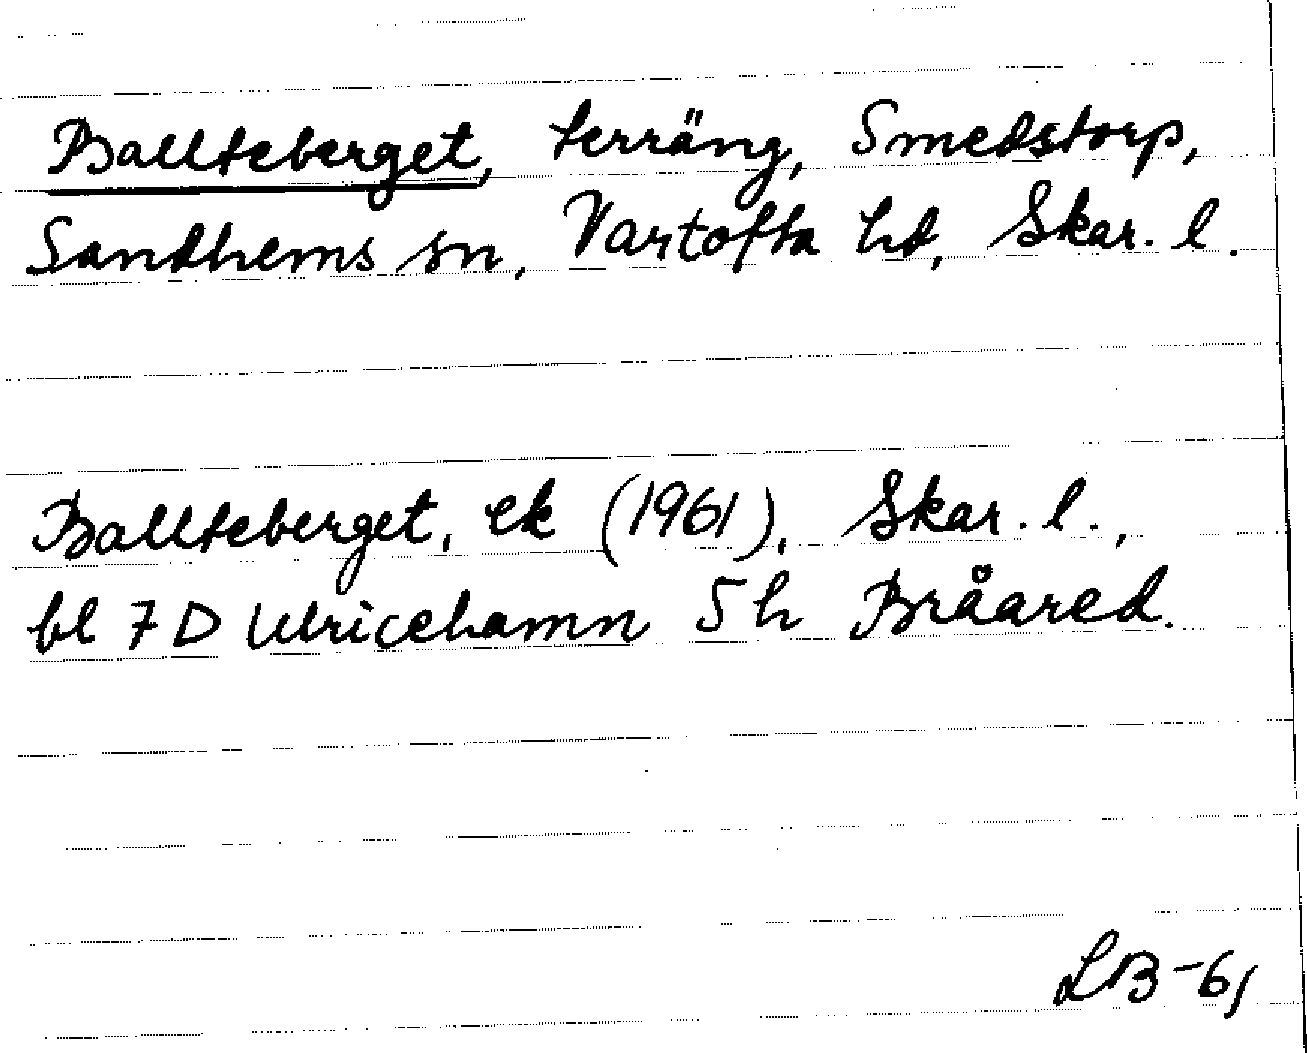 Ballteberget, terräng, Smedstorp,
Sandhems sn, Vartofta hd, Skar. l.
Ballteberget, ek (1961), Skar. l.,
bl 7 D Ulricehamn 5 h Bråared.
LB-61